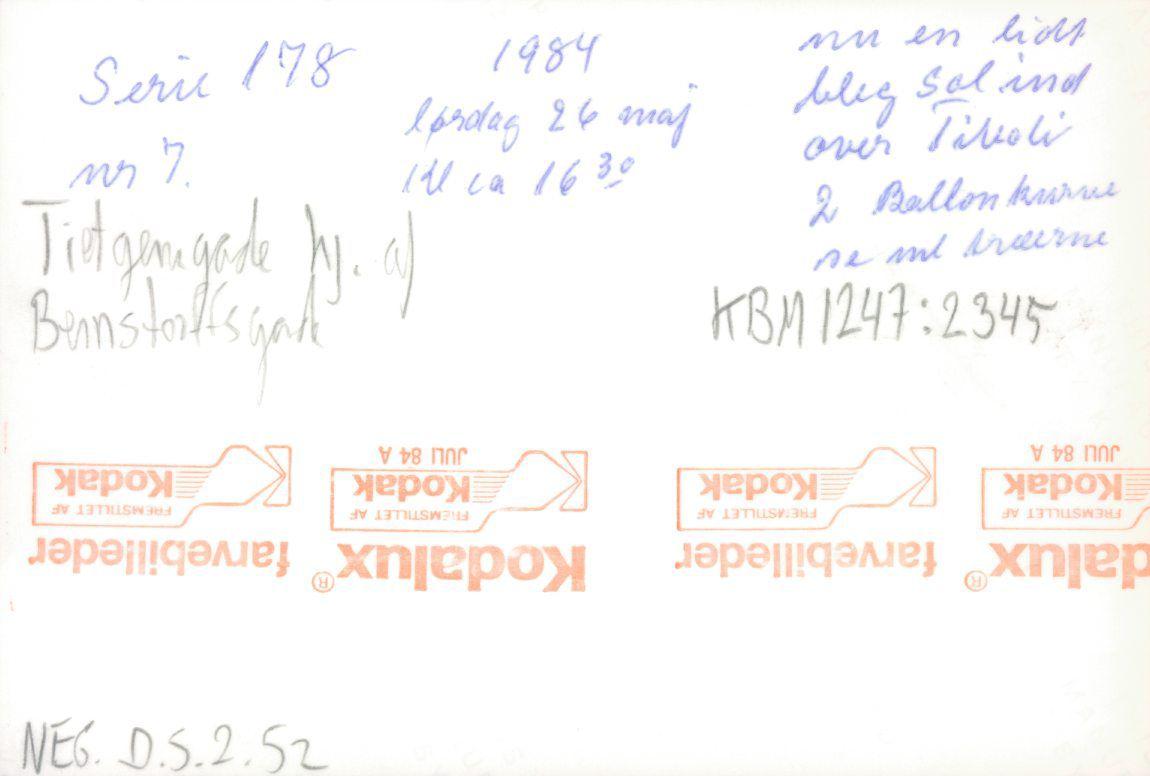 Serie 178
nr 7.
1984
lørdag 26 maj
Kl ca 16 30
nu en lidt
bleg Sol ind
over Tivoli
2 Ballonkurve
se ml træerne
Tietgensgade hj. af
Bernstorffsgade
KBM 1247:2345
JULI 84 A
JULI 84 A
Kodak
Kodak
Kodak
Kodak
FREMSTILLET AF
FREMSTILLET AF
FREMSTILLET AF
FREMSTILLET AF
farvebilleder
Kodalux®
farvebilleder
dalux®
NEG. D.S.2.52